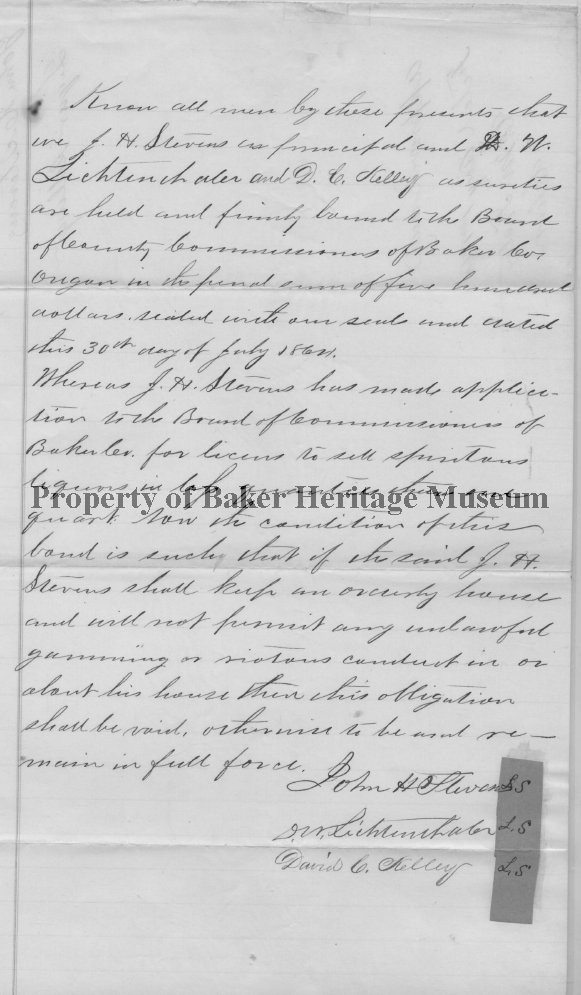 Know all men by these presents that
we J. H. Stevens as principal and D. W.
Lichtenthaler and D. C. Kelley as sureties
are held and firmly bound to the Board
of County Commissioners of Baker Co.
Oregon in the penal sum of five hundred
dollars. sealed with our seals and dated
this 30th day of July 1864.
Whereas J. H. Stevens has made applica-
tion to the Board of Commissioners of
Baker Co. for licens to sell spiritous
liquors in less quantities than one
Property of Baker Heritage Museum
quart. Now the condition of this
bond is such that if the said J. H.
Stevens shall keep an orderly house
and will not permit any unlawful
gamming or riotous conduct in or
about his house then this obligation
shall be void, otherwise to be and re-
main in full force.
John H Stevens L.S
D. W. Lichtenthaler L.S
David C. Kelley L.S